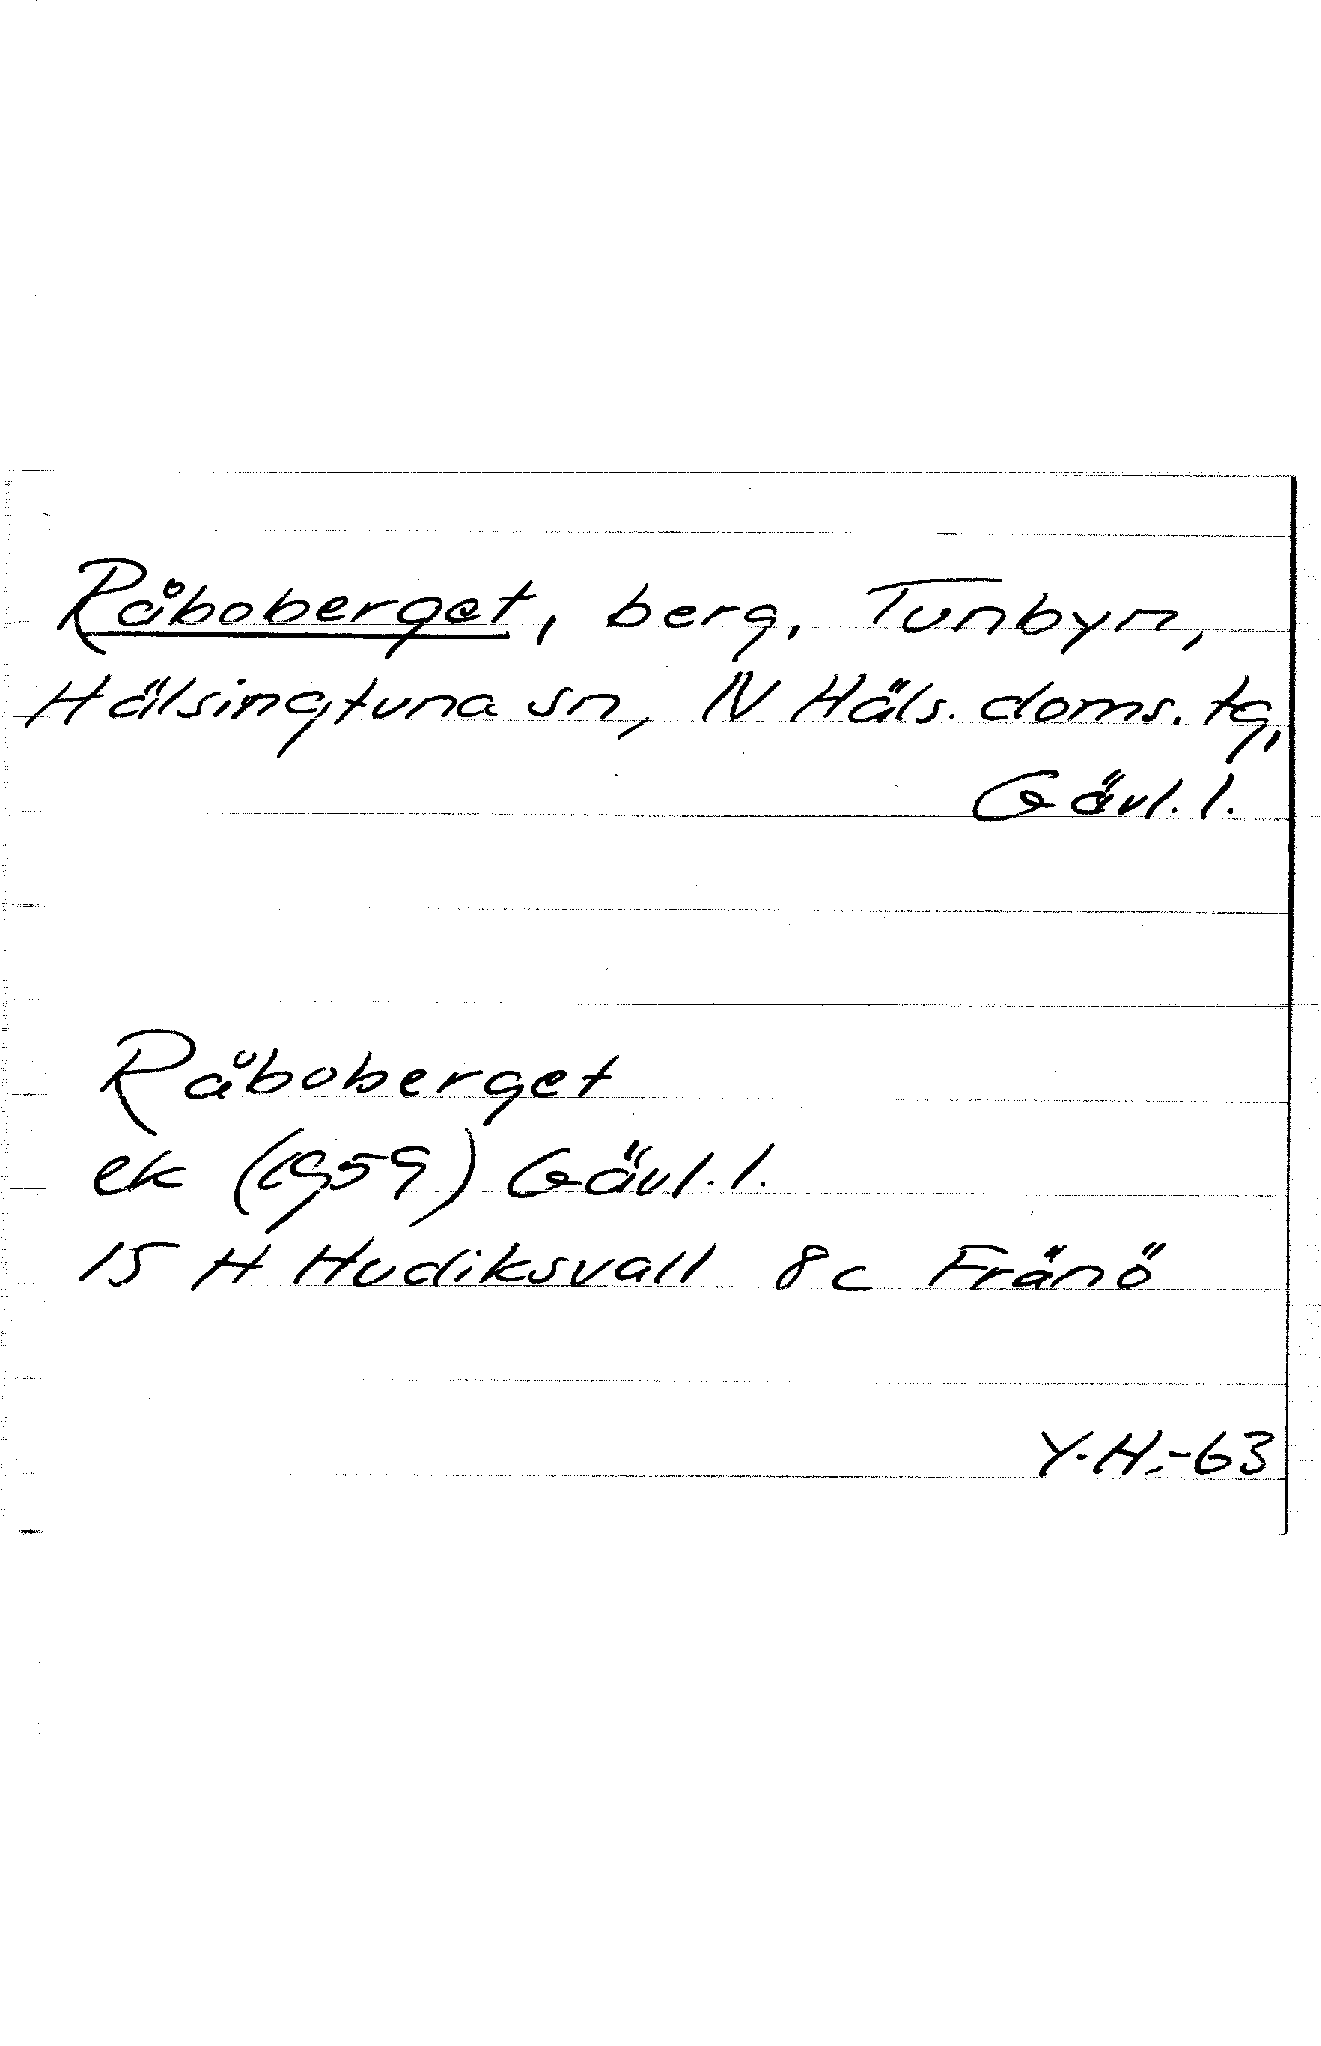 Råboberget, berg, Tunbyn,
Hälsingtuna sn, N Häls. doms. tg,
Gävl. l.
Råboberget
ek (1959) Gävl. l.
15 H Hudiksvall 8c Fränö
Y.H.-63